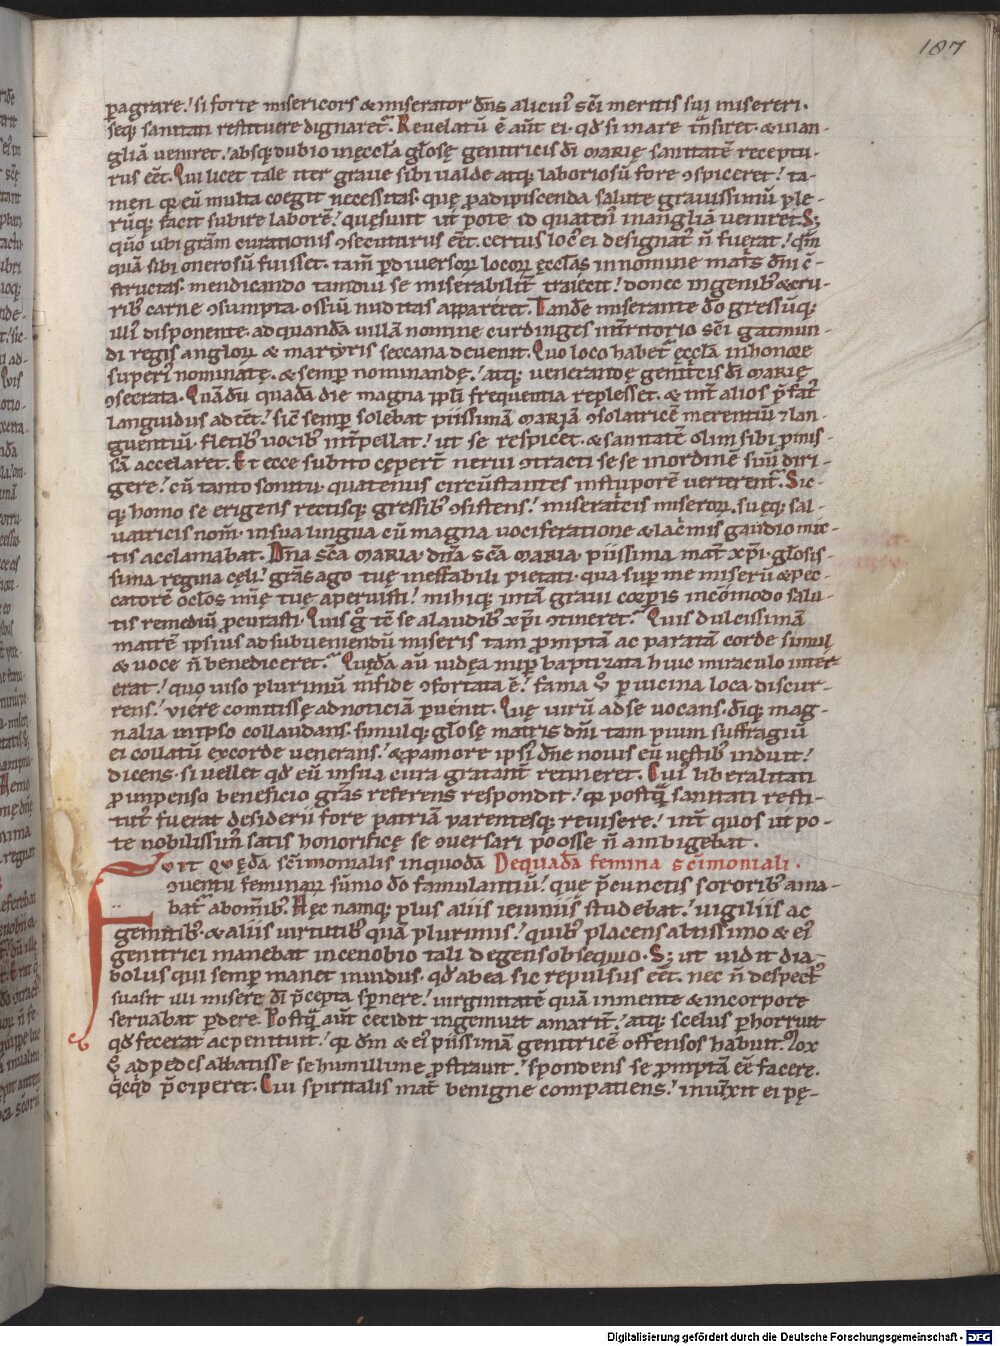 187
pagrare. si forte misericors & miserator dn̄s alicui' sc̄i meritis sui misereri.
seq; sanitati restituere dignaret̄. Revelatū ē aut̄ ei. qd̄ si mare t̄nsiret. & in an-
gliā veniret. absq; dubio in ęccl̄a gl̄osę genitricis dī marię sanitatē receptu-
rus eēt. Qui licet tale iter grave sibi valde atq; laboriosū fore ɔspiceret. ta-
men qr̄ eū multa coegit necessitas. que ꝓ adipiscenda salute gravissimū ple-
rūq; facit subire laborē. quęsivit in
quo ubi gr̄am curationis ɔsecuturus eēt. certus loc' ei designat' n̄ fuerat. qm̄
quā sibi onerosū fuisset. tam̄ ꝑ diversoꝝ locoꝝ ęccl̄as in nomine mat̄s dn̄i ɔ-
structas. mendicando tamdiu se miserabilit̄ traiecit. donec in genib' & cru-
rib' carne ɔsumpta. ossiū nuditas appareret. Tandē miserante dō gressūq;
illi' disponente. ad quandā villā nomine curdinges in t̄ritorio sc̄i eatmun-
di regis angloꝝ & martyris seccana devenit. Quo loco habet̄ ęccl̄a in honore
superi' nominatę. & semp̄ nominandę. atq; venerandę genit̄cis dī marię
ɔsecrata. Quā dū quadā die magna ipl̄i frequentia replesset. & int̄ alios p̄fat'
languidus adeēt. sic̄ semp̄ solebat piissimā mariā ɔsolatricē merentiū ⁊ lan-
guentiū. fletib' vocib' int̄pellat. ut se respiceret. & sanitatē olim sibi ꝓmis-
sā accelaret. Et ecce subito cepert̄ nervi ɔtracti sese in ordinē suū diri-
gere. cū tanto sonitu. quatenus circūstantes in stuporē verterent̄. Sic-
q; homo se erigens rectisq; gressib' ɔsistens. miserat̄cis miseroꝝ. suęq; sal-
vatricis nom̄. in sua lingua cū magna vociferatione & lac̄mis gaudio mix-
tis acclamabat. Dn̄a sc̄a maria. dn̄a sc̄a maria. piissima mat̄ xp̄i. gl̄osis-
sima regina cęli. gr̄as ago tuę ineffabili pietati. qua sup̄ me miserū & pec-
catorē oclōs mīe tuę aperuisti. mihiq; int̄a gravi corporis incōmodo salu-
tis remediū ꝓcurasti. Quis g̊ t̄e se a laudib' xp̄i ɔtineret. Quis dulcissimā
matrē ipsius ad subveniendū miseris tam ꝓmptā ac paratā corde simul
& voce n̄ benediceret. Quędā aū iudęa nup̄ baptizata huic miraculo inter
erat. quo viso plurimū in fide ɔfortata ē. fama v̊ ꝑ vicina loca discur-
rens. viere comitissę ad noticiā ꝑvenit. Que virū ad se vocans. dīq; mag-
nalia in ipso collaudans. simulq; gl̄osę matris dn̄i tam pium suffragiū
ei collatū ex corde venerans. & ꝓ amore ipsi' dn̄e novis eū vestib' induit.
dicens. si vellet qd̄ eū in sua cura gratant̄ retineret. Cui' liberalitati
ꝓ impenso beneficio gr̄as referens respondit. qr̄ postq̄ sanitati resti-
tut' fuerat desideriū fore patriā parentesq; revisere. int̄ quos ut po-
te nobilissim' satis honorificę se ɔversari posse n̄ ambigebat.
Fuit quędā sc̄imonialis in quodā De quadā femina sc̄imoniali.
ɔventu feminaꝝ sūmo dō famulantiū. que p̄ cunctis sororib' ama-
bat̄ ab om̄ib'. Hec namq; plus aliis ieiuniis studebat. vigiliis ac
gemitib'. & aliis virtutib' quā plurimis. quib' placens altissimo & ei'
genitrici manebat in cenobio tali degens obsequio. S; ut vidit dia-
bolus qui semp̄ manet invidus. qd̄ ab ea sic repulsus eēt. nec n̄ despect'
suasit illi misere dī p̄cepta sp̄nere. virginitatē quā in mente & in corpore
servabat ꝑdere. Postq̄ aut̄ cecidit ingemuit amarit̄. atq; scelus ꝑhorruit
qd̄ fecerat ac penituit. qr̄ dm̄ & ei' piissimā genitricē offensos habuit. Mox
v̊ ad pedes abbatisse se humillime ꝓstravit. spondens se ꝓmptā eē facere.
q̄cq̄d p̄ciperet. Cui spiritalis mat̄ benigne compatiens. iniunxit ei pę-
Digitalisierung gefördert durch die Deutsche Forschungsgemeinschaft - DFG